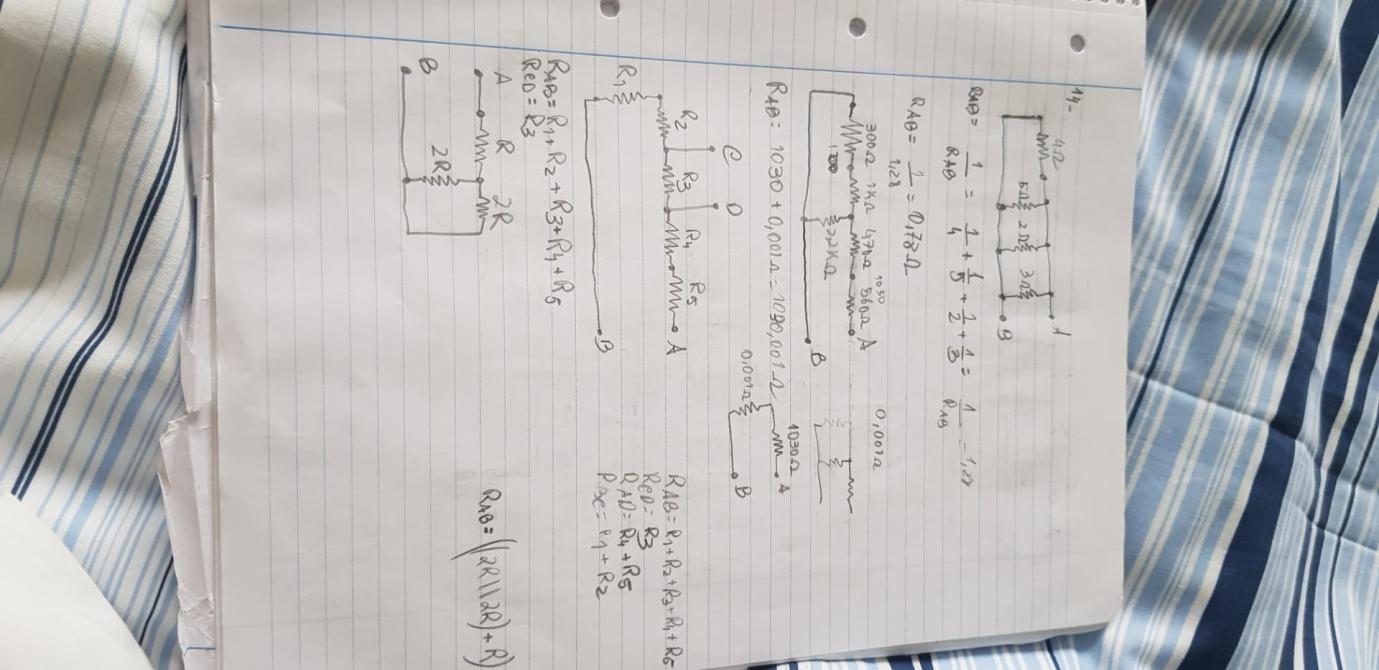 14-
4Ω
A
5Ω 2Ω 3Ω
B
RAB = 1/RAB = 1/4 + 1/5 + 1/2 + 1/3 = 1/RAB = 1,28
RAB = 1/1,28 = 0,78Ω
1030
300Ω 1KΩ 470Ω 560Ω A
0,001Ω
1300 2,2KΩ
B
1030Ω
A
RAB = 1030 + 0,001Ω = 1030,001Ω
0,001Ω
B
C D
R2 R3 R4 R5 A
R1
B
RAB = R1 + R2 + R3 + R4 + R5
RCD = R3
RAD = R4 + R5
RBC = R1 + R2
RAB = R1 + R2 + R3 + R4 + R5
RCD = R3
A R 2R
2R
B
RAB = ((2R\\2R) + R)